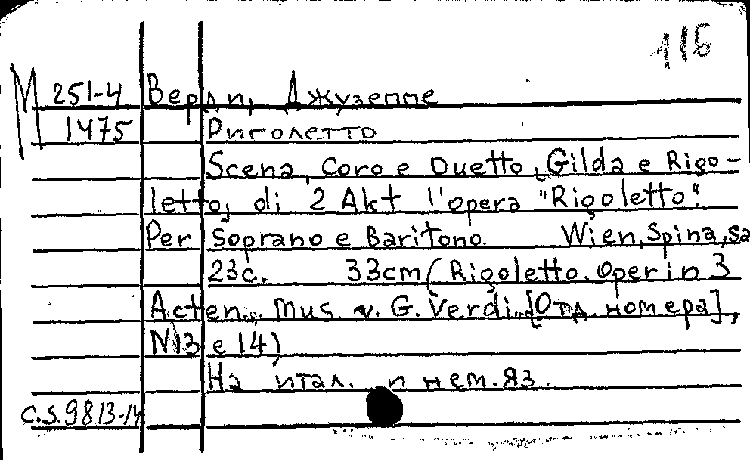 116
М 251-4 Верди, Джузеппе
1475 Риголетто
Scena, Coro e Duetto, Gilda e Rigo-
letto, di 2 Akt l'opera "Rigoletto".
Per Soprano e Baritono. Wien, Spina, sa
23с. 33cm (Rigoletto. Oper in 3
Acten. Mus. v. G. Verdi. [Отд. номера],
N13 e 14)
На итал. и нем. яз.
C.S. 9813-14